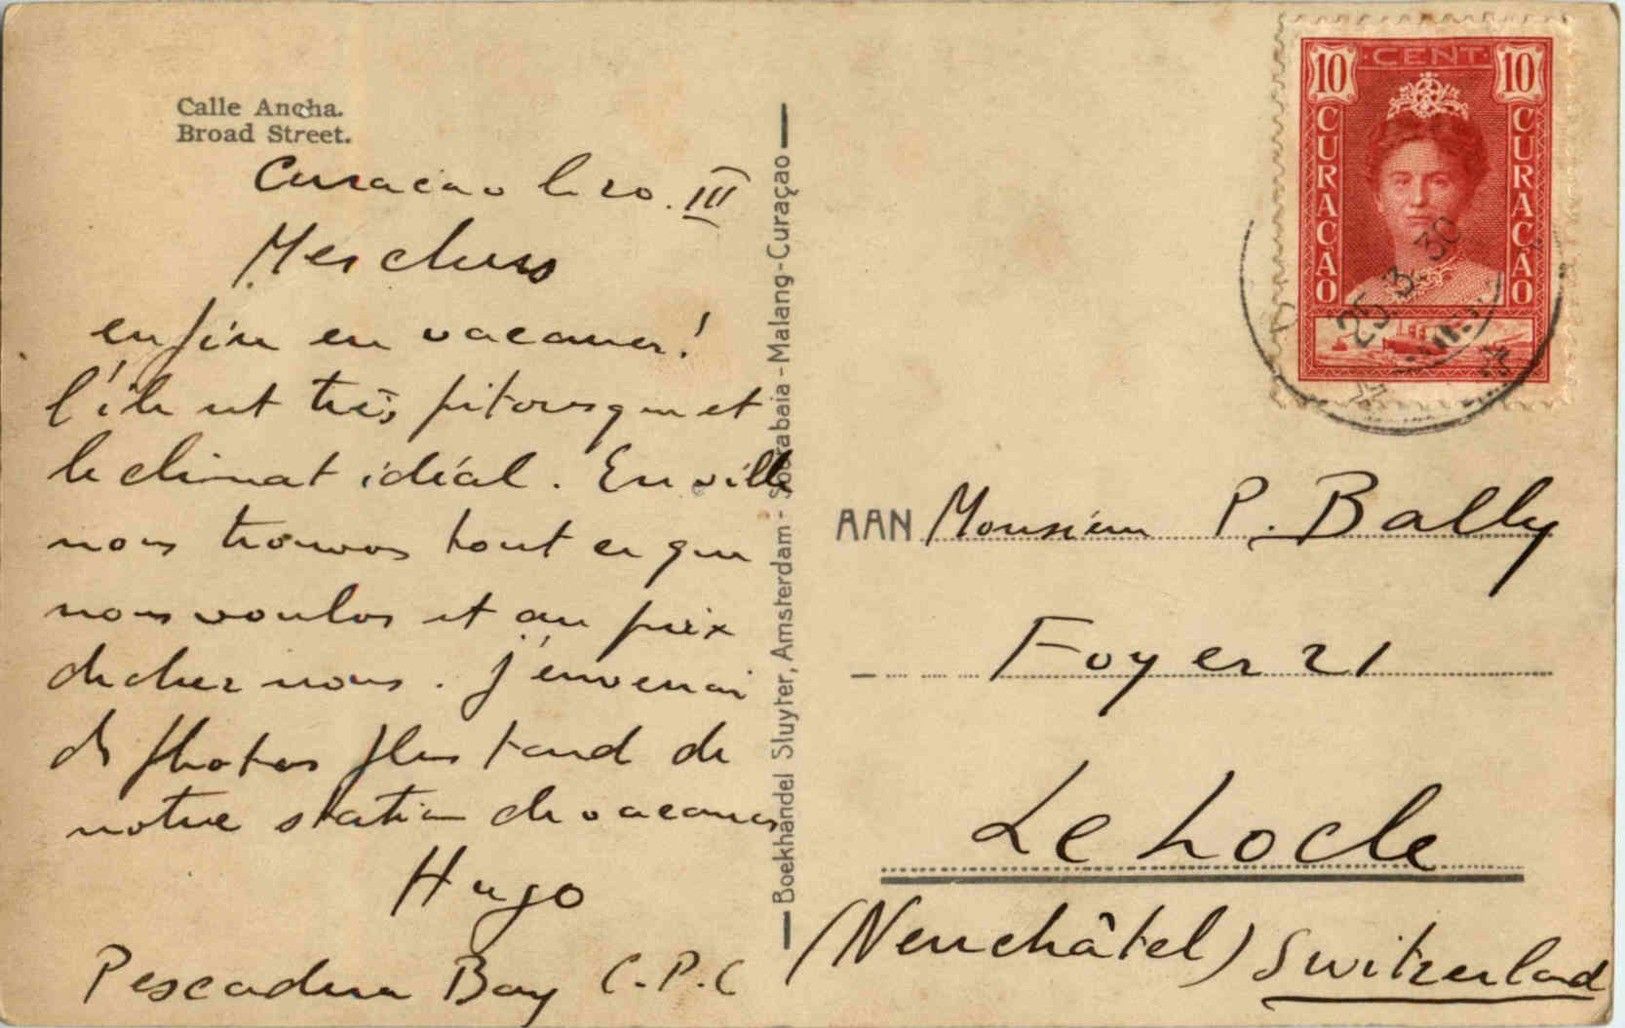 Calle Ancha.
Broad Street.
Curacao le 20. III
enfin en vacances!
l'île est très pitoresque et
le climat idéal. En ville
nous trouvons tout ce que
nous voulos et au prix
de chez nous. J'enverrai
des photos plus tard de
notre station de vacances
Hugo
Pescadera Bay C.P.C
Boekhandel Sluyter, Amsterdam - Soerabaia - Malang - Curaçao
CENT
10 10
CURAÇAO CURAÇAO
25.3.30
AAN Monsieur P. Bally
Foyer 21
Le Locle
(Neuchâtel) Switzerland